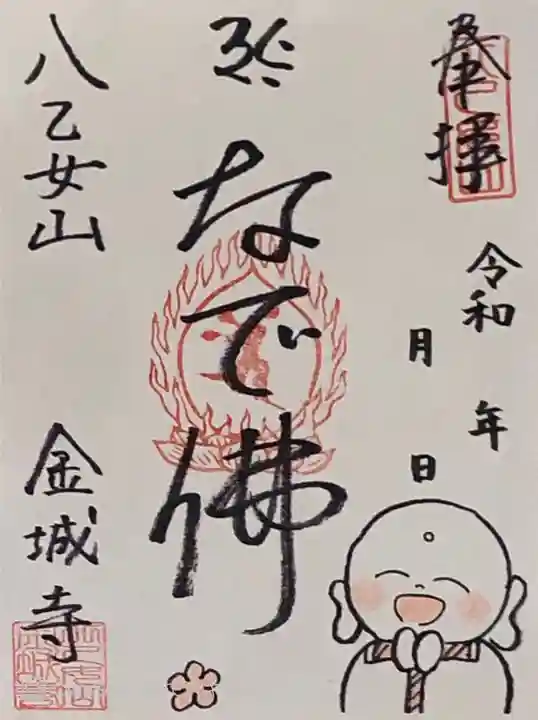 奉拝
令和 年
月 日
なで佛
八乙女山
金城寺